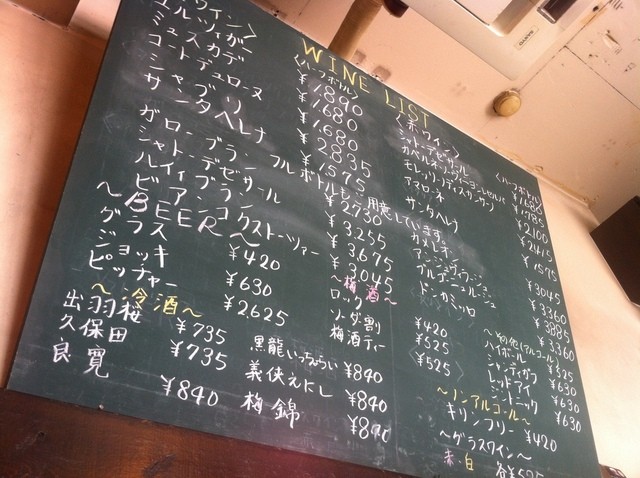 WINE LIST
ワイン〉
〈ハーフボトル〉
ミュスカデ ¥1.890
コートデュローヌ ¥1.680
シャブリ ¥1.680
サンタヘレナ ¥2.835
¥1.575
フルボトルもご用意しています。
ガローブラン ¥2.730
シャトーデゼサール ¥3.255
ルイィブラン ¥3.675
ビアンコクストーツァー ¥3.045
〜BEER〜
グラス ¥420
ジョッキ ¥630
ピッチャー ¥2625
〜冷酒〜
出羽桜 ¥735
久保田 ¥735
良寛 ¥840
黒龍いっちょらい ¥840
義侠えにし ¥840
梅錦 ¥840
〜梅酒〜
ロック ¥420
ソーダ割 ¥525
梅酒ティー ¥525
〈赤ワイン〉
〈ハーフボトル〉
シャトーデゼサール ¥1680
¥1785
¥2100
アマローネ ¥2415
サンタヘレナ ¥1575
カメレオン ¥3045
¥3360
ブルゴーニュルージュ ¥3885
ドンカミッロ ¥3360
〜その他(アルコール)〜
ハイボール ¥525
シャンディガフ ¥630
レッドアイ ¥630
ジントニック ¥630
〜ノンアルコール〜
キリンフリー ¥420
〜グラスワイン〜
赤・白 各¥525
SANYO